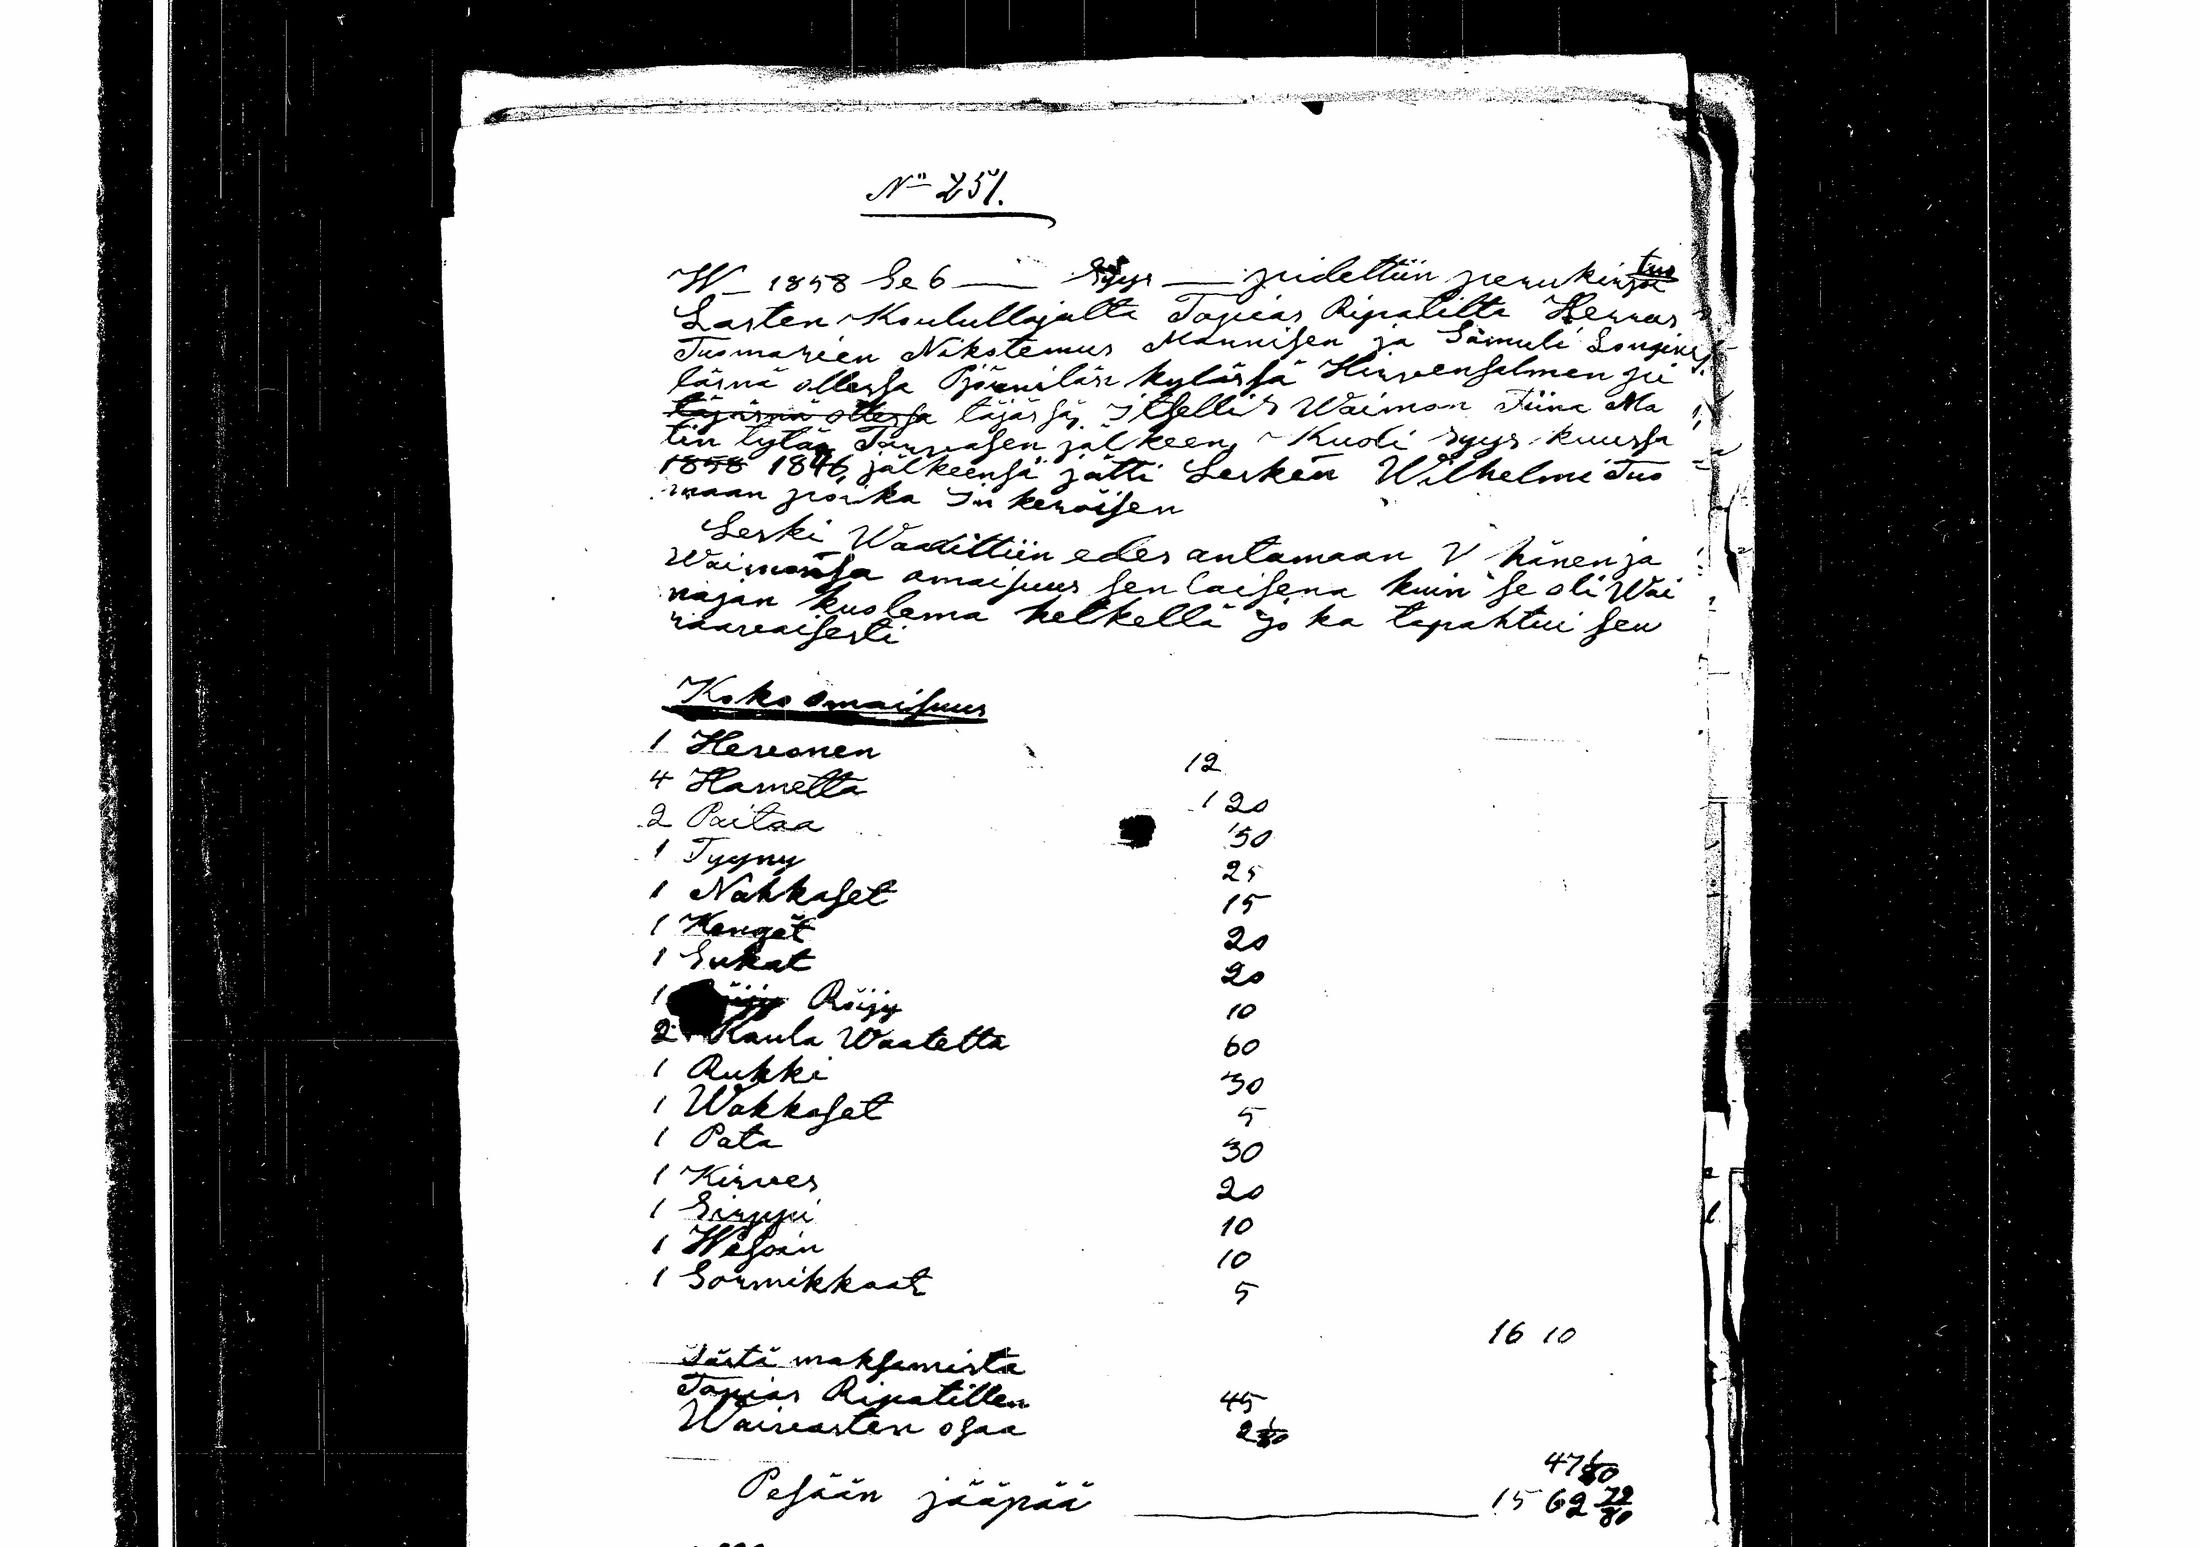 No 251.
W_ 1858 Se 6 — Syys — pidettiin perukirjoi tus
Lasten Koulullajalta Topias Ripatilta Herras
Tuomarien Nikotemus Mannisen ja Samuli Longins
läsnä ollessa Pjönnilän kylässä Hirwensalmen pi
täjäsnä ollessa täjäsä, Itsellis Waimon Tiina Ma
tin tytär jälkeen, Kuoli syys kuussa
1858 1846, jälkeensä jätti Lesken Wilhelmi Tuo
maan poika Inkeroisen
Leski Waadittiin edes antamaan V hänen ja
Waimonsa omaisuus sen laisena kuin se oli Wai
najan kuolema hetkellä jo ka tapahtui seu
raavaisesti
Koko omaisuus
1 Hevonen 12
4 Hametta 1 20
2 Paitaa 50
1 Tyyny 25
1 Nahkaset 15
1 Kengät 20
1 Sukat 20
1 Röijy 10
2 Kaula Waatetta 60
1 Rukki 30
1 Wakkaset 5
1 Pata 30
1 Kirves 20
1 Sirppi 10
1 10
1 Sormikkaat 5
16 10
Tästä maksamista
Topias Ripatillen 45
Waivasten osaa 2 1/80
47 1/80
Pesään jääpää 15 62 72/80